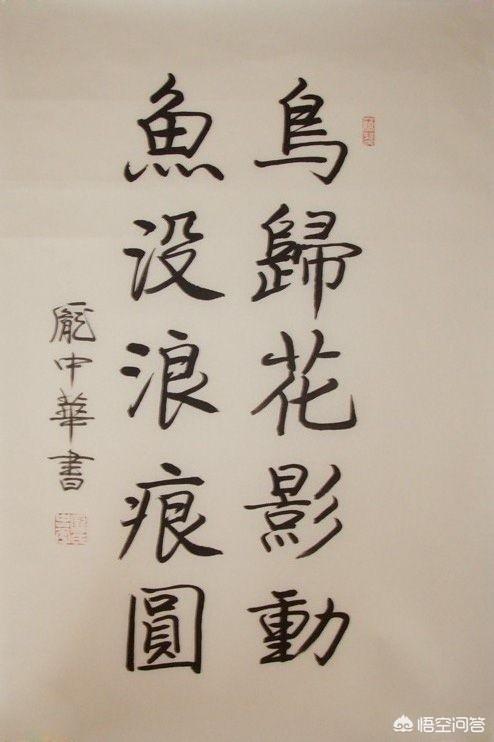 鳥歸花影動
魚没浪痕圓
龐中華書
悟空问答